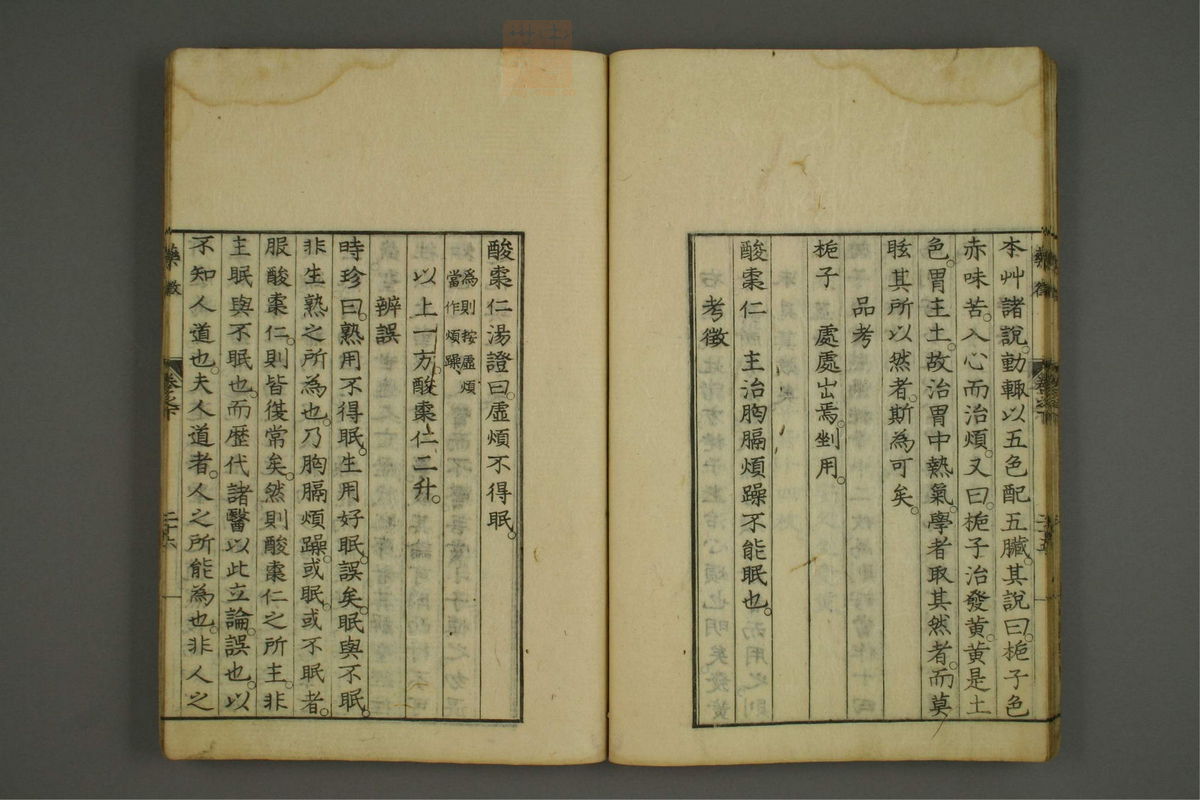 本艸諸說。動輒以五色配五臟。其說曰。梔子色
赤味苦。入心而治煩。又曰。梔子治發黃。黃是土
色。胃主土。故治胃中熱氣。學者取其然者。而莫
眩其所以然者。斯為可矣。
品考
梔子　處處出焉。剉用。
酸棗仁　主治胸膈煩躁不能眠也。
考徵
酸棗仁湯證曰。虛煩不得眠。
為則按虛煩
當作煩躁
以上一方。酸棗仁二升。
辨誤
時珍曰。熟用不得眠。生用好眠。誤矣。眠與不眠。
非生熟之所為也。乃胸膈煩躁。或眠。或不眠者。
服酸棗仁。則皆復常矣。然則酸棗仁之所主。非
主眠與不眠也。而歷代諸醫以此立論。誤也。以
不知人道也。夫人道者。人之所能為也。非人之
藥徵
卷之下
二十六